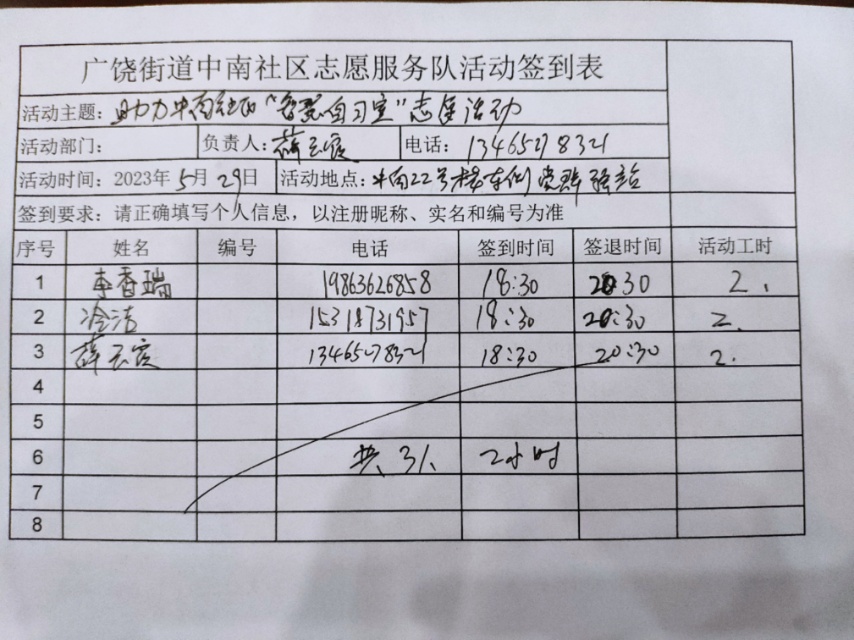 广饶街道中南社区志愿服务队活动签到表
活动主题: 助力中南社区“智慧自习室”志愿活动
活动部门: 负责人: 薛云霞 电话: 13465278321
活动时间: 2023年 5月 29日 活动地点: 中南22号楼东侧
签到要求: 请正确填写个人信息，以注册昵称、实名和编号为准
序号 姓名 编号 电话 签到时间 签退时间 活动工时
1 李香瑞 19863626858 18:30 20:30 2.
2 冷洁 15318731957 18:30 20:30 2.
3 薛云霞 13465278321 18:30 20:30 2.
4
5
6 共3人 2小时
7
8